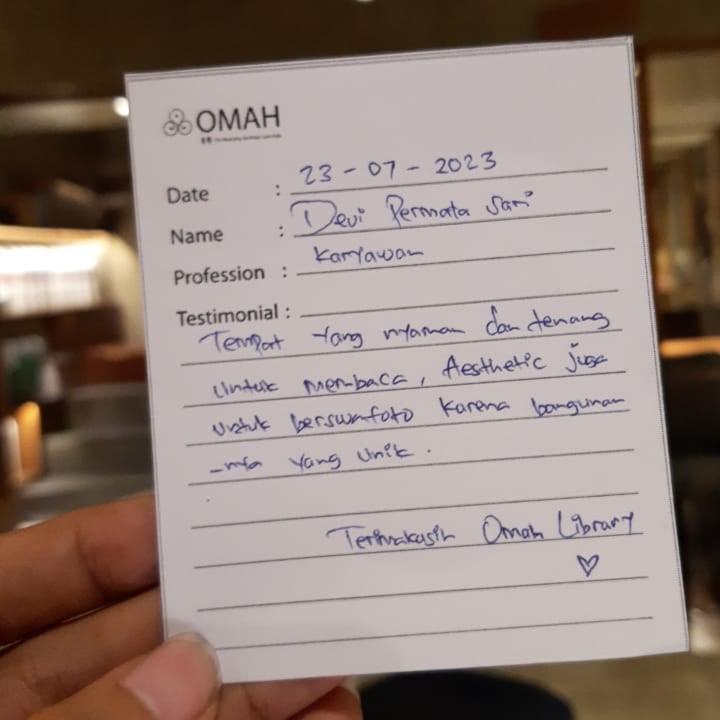 OMAH
Date : 23 - 07 - 2023
Name : Devi Permata Sari
Profession : Karyawan
Testimonial :
Tempat yang nyaman dan tenang
untuk membaca, Aesthetic juga
untuk berswafoto karena bangunan
-nya yang unik.
Terimakasih Omah Library
♡